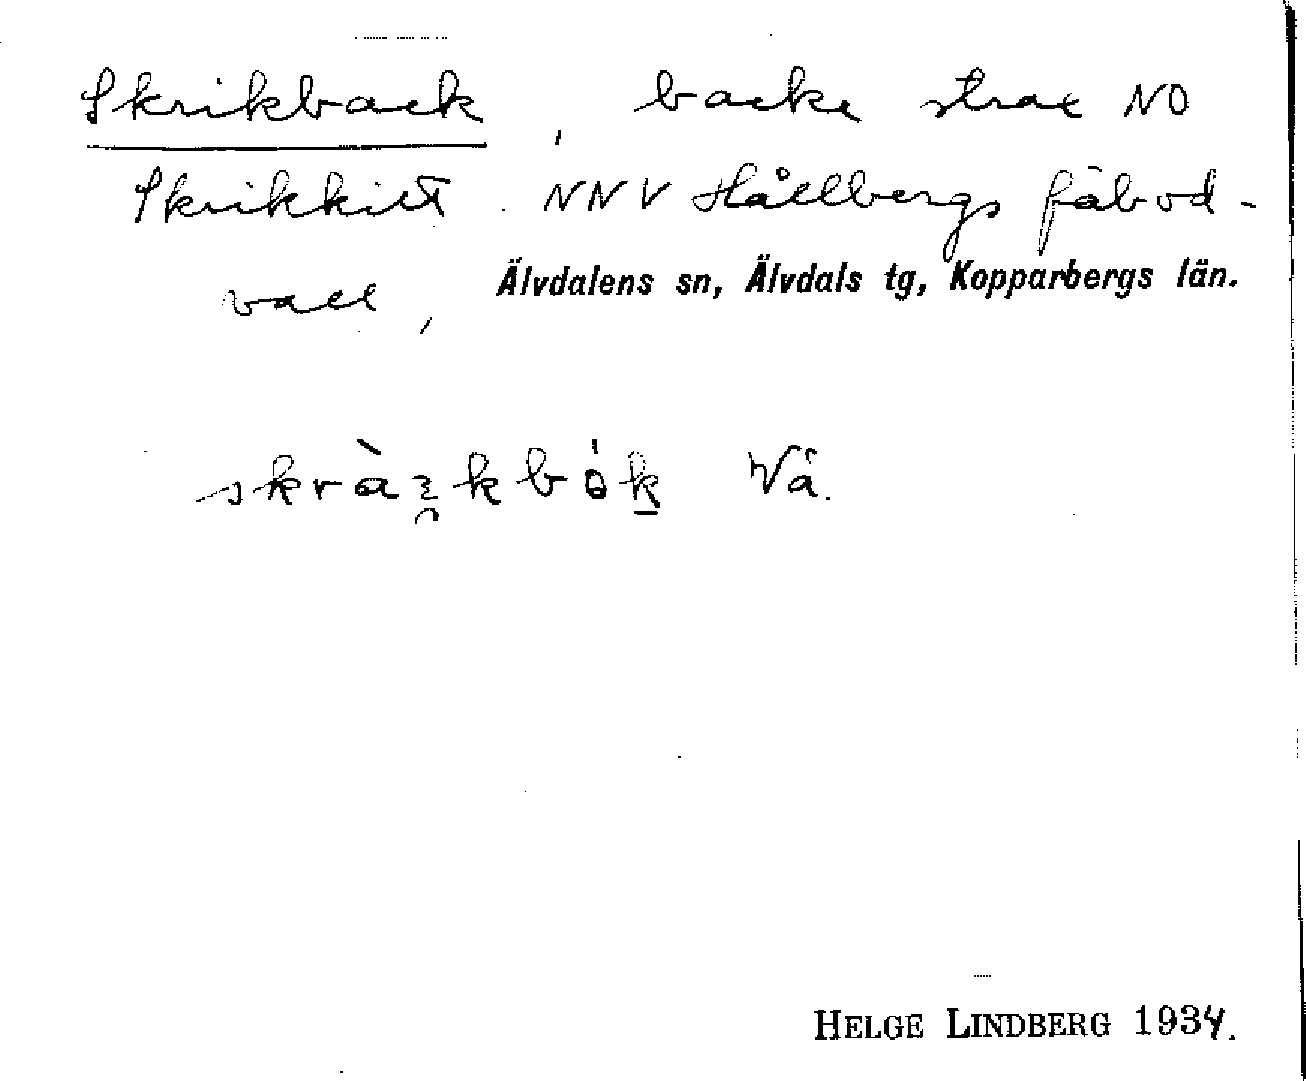 Skrikback, backe strax NO
Skrikkilt NNV Hållbergs fäbod-
vall, Älvdalens sn, Älvdals tg, Kopparbergs län.
Vå.
HELGE LINDBERG 1934.